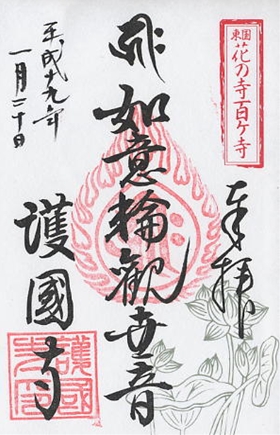 東国
花の寺百ヶ寺
奉拝
如意輪觀世音
護國寺
平成十九年
一月二十日